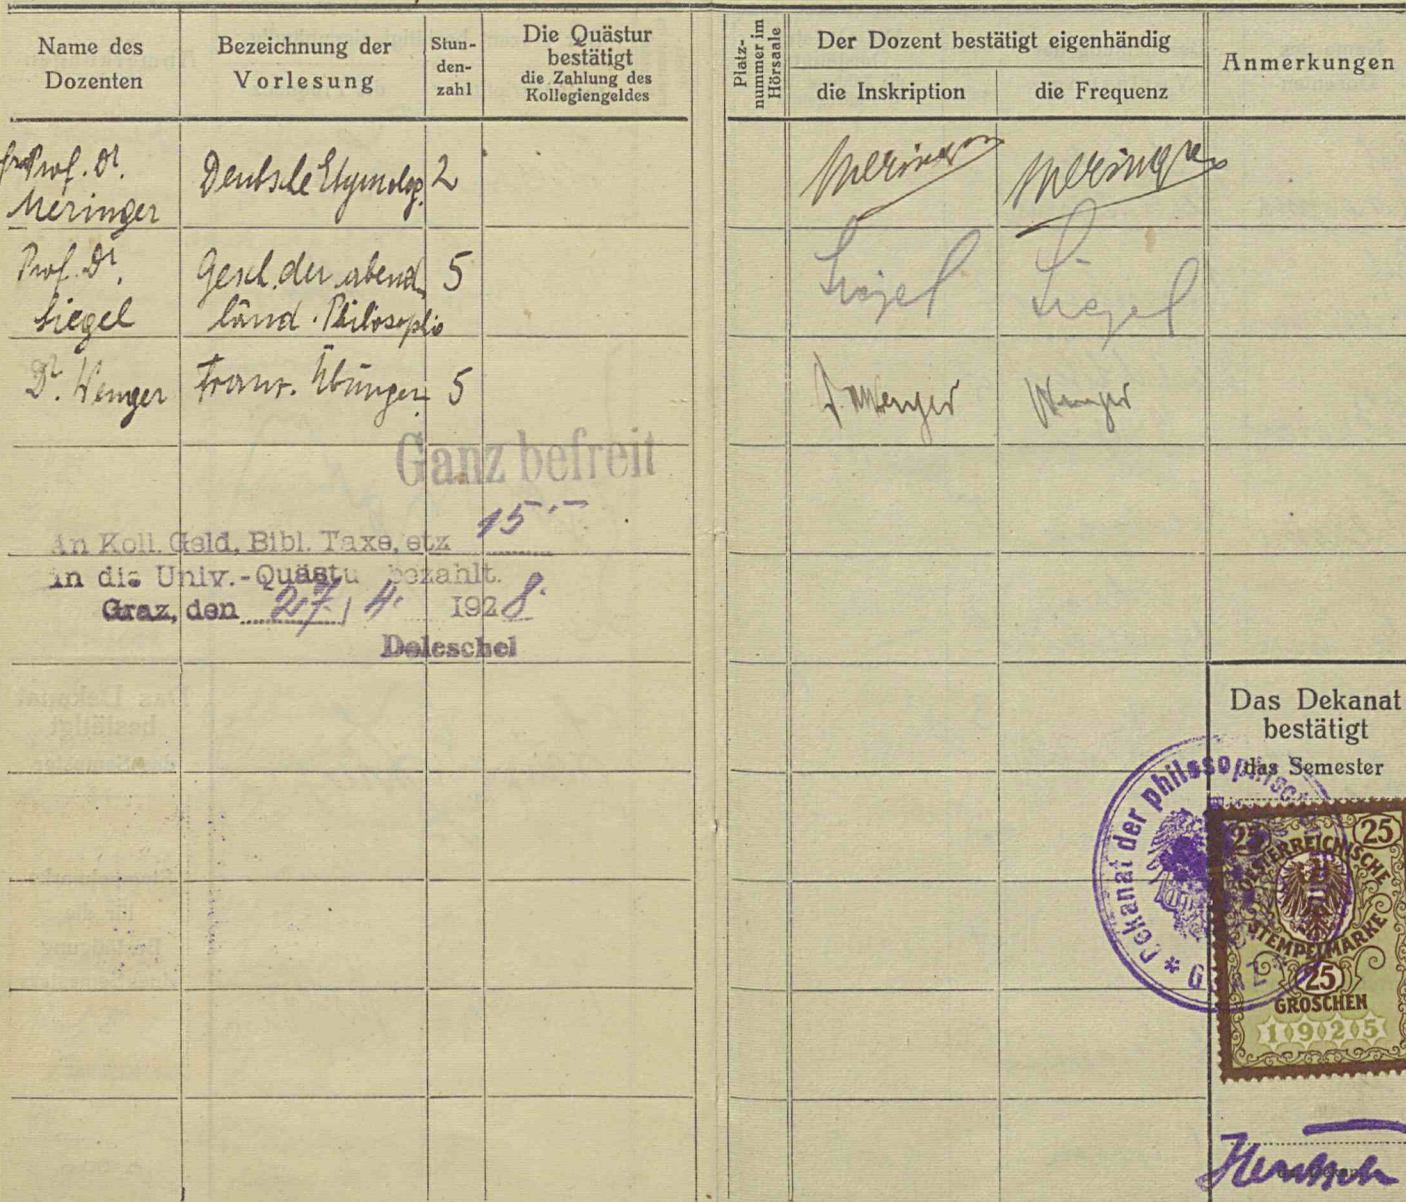 Name des
Dozenten
Bezeichnung der
Vorlesung
Stun-
den-
zahl
Die Quästur
bestätigt
die Zahlung des
Kollegiengeldes
Platz-
nummer im
Hörsaale
Der Dozent bestätigt eigenhändig
die Inskription
die Frequenz
Anmerkungen
Prof. Dr.
Meringer
Deutsche Etymolog.
2
Meringer
Meringer
Prof. Dr.
Siegel
Gesch. der abend
länd. Philosophie
5
Siegel
Siegel
Dr. Wenger
Franz. Übungen
5
Wenger
Wenger
Ganz befreit
An Koll. Geld, Bibl. Taxe, etz 15.-
in die Univ.-Quästu bezahlt.
Graz, den 27. / 4. 1928.
Doleschel
Das Dekanat
bestätigt
das Semester
* Dekanat der philosophisc
GRAZ *
25 25
OESTERREICHISCHE
STEMPELMARKE
25
GROSCHEN
1925